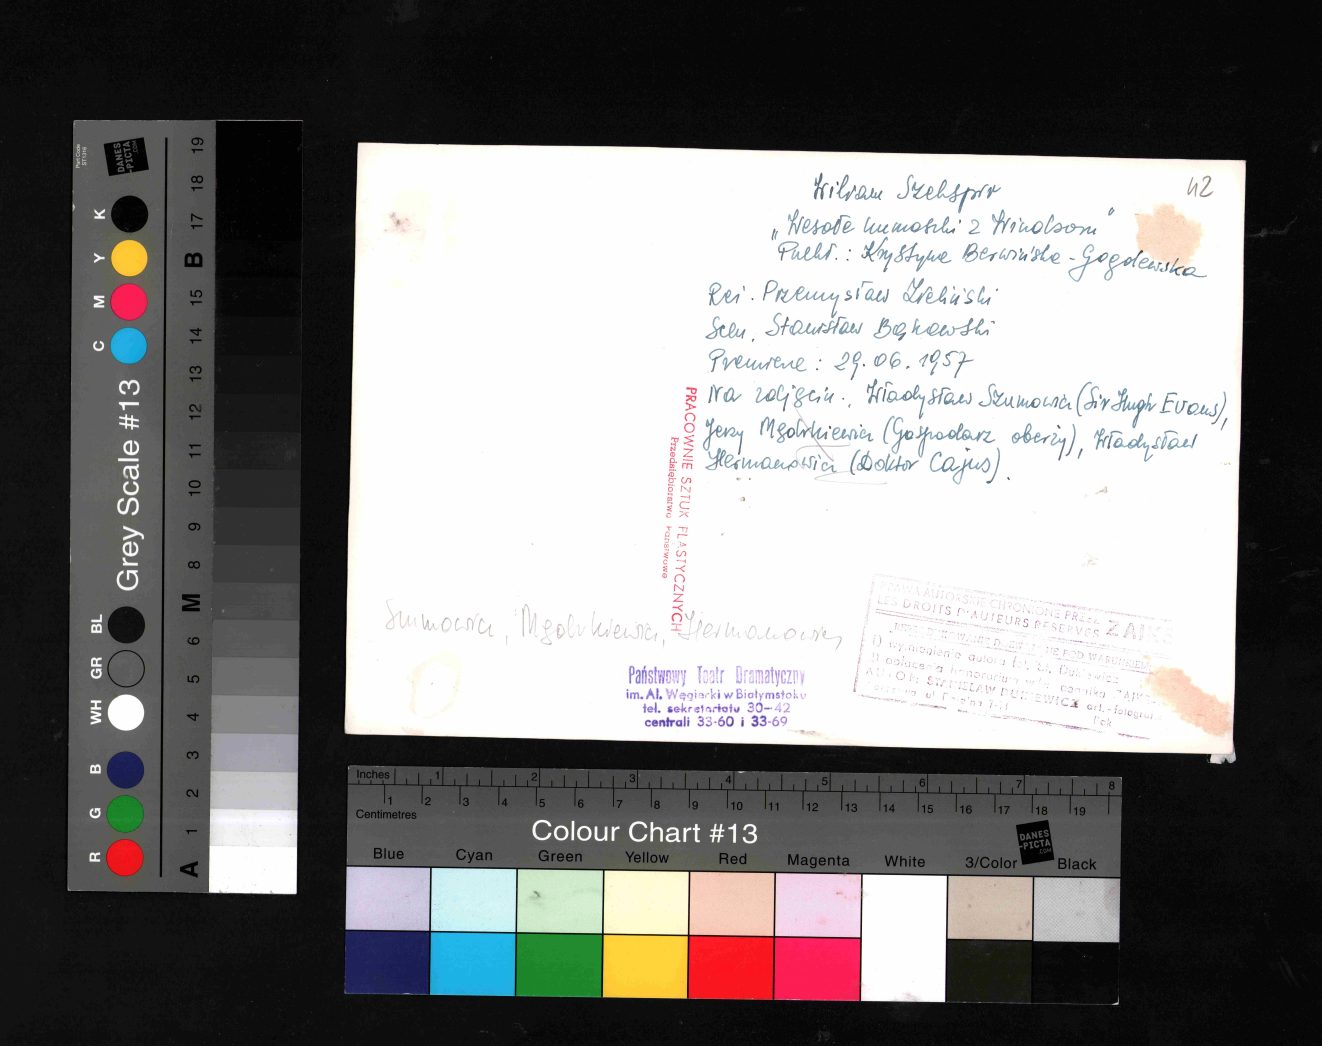 42
Wiliam Szekspir
„Wesołe kumoszki z Windsoru"
Przekł.: Krystyna Berwińska-Gogolewska
Reż. Przemysław Zieliński
Scen. Stanisław Bąkowski
Premiera: 29.06.1957
Na zdjęciu: Władysław Szumowicz (Sir Hugh Evans),
Jerzy Mgołrkiewicz (Gospodarz oberży), Władysław
Hermanowicz (Doktor Cajus).
PRACOWNIE SZTUK PLASTYCZNYCH
Przedsiębiorstwo Państwowe
Szumowicz, Hermanowicz
Państwowy Teatr Dramatyczny
im. Al. Węgierki w Białymstoku
tel. sekretariatu 30-42
centrali 33-60 i 33-69
PRAWA AUTORSKIE CHRONIONE PRZEZ ZAIKS
LES DROITS D'AUTEURS RESERVES
1) wymienienia autora
2) opłacenia honorarium
AUTOR: STANISŁAW art.-fotograf
Part Code
ST1316
DANES
-PICTA
.COM
Grey Scale #13
R G B WH GR BL C M Y K
A 1 2 3 4 5 6 M 8 9 10 11 12 13 14 15 B 17 18 19
Inches 1 2 3 4 5 6 7 8
Centimetres 1 2 3 4 5 6 7 8 9 10 11 12 13 14 15 16 17 18 19
Colour Chart #13
DANES
-PICTA
.COM
Blue Cyan Green Yellow Red Magenta White 3/Color Black